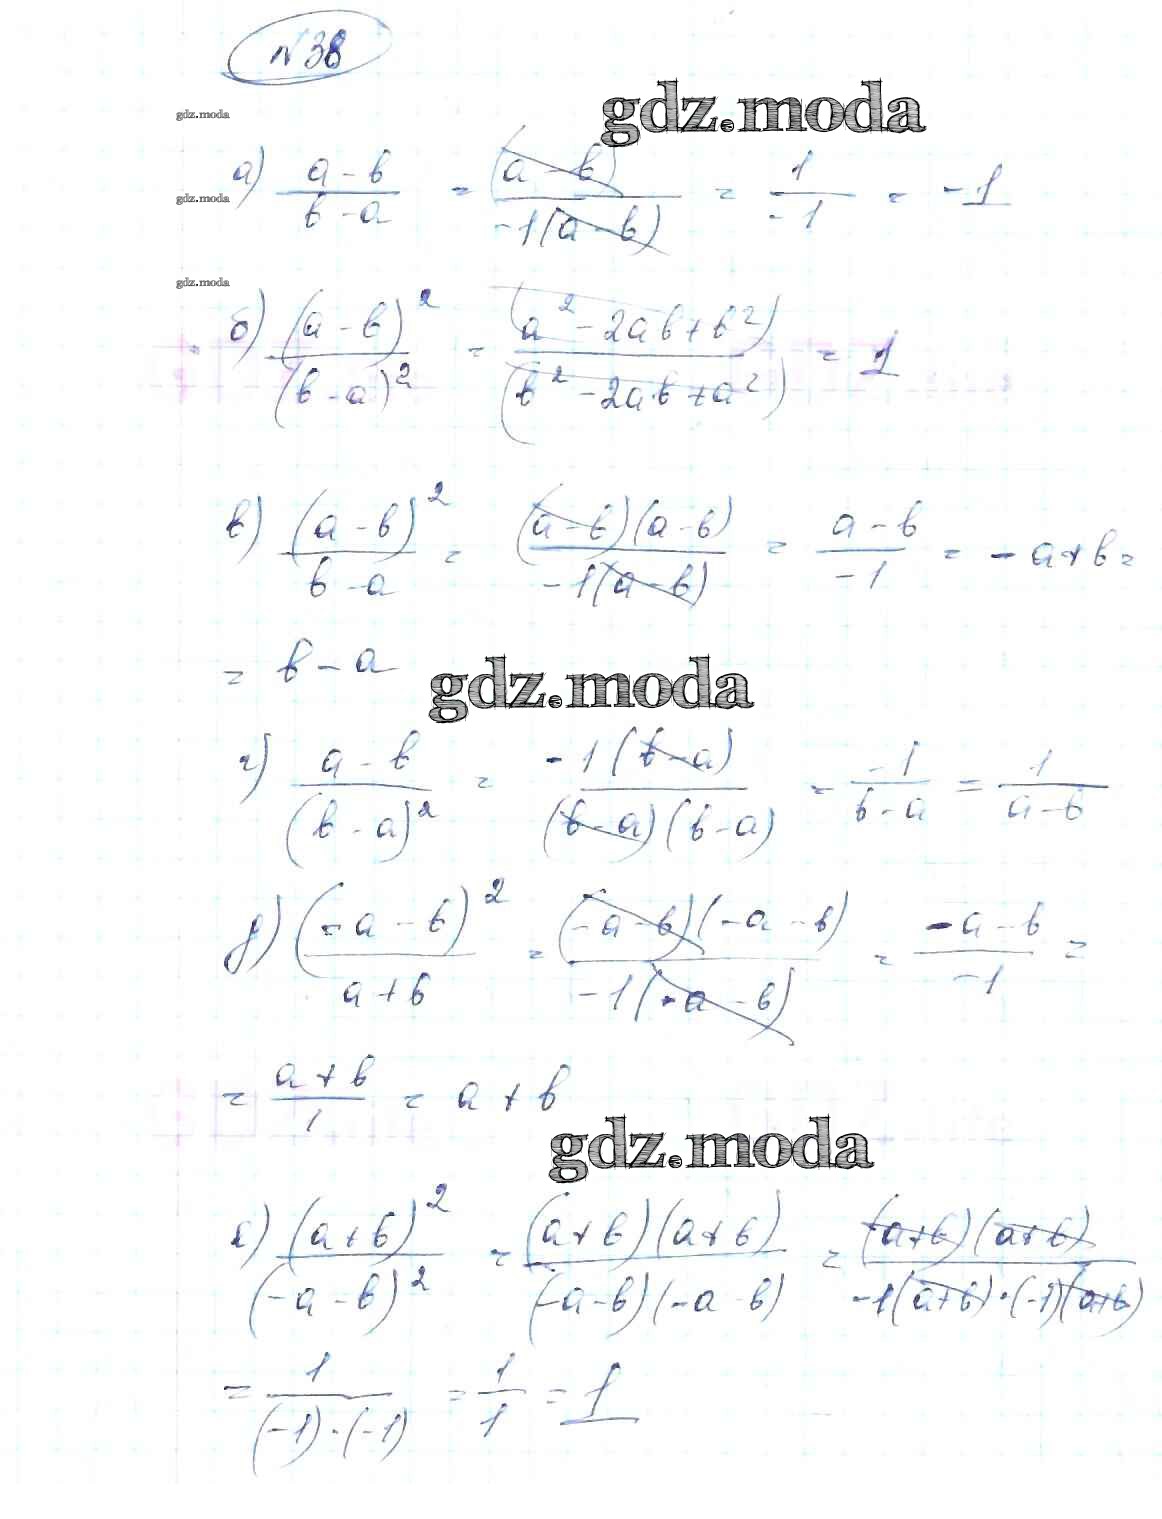 №38
gdz.moda
gdz.moda
а) (a-b)/(b-a) = (a-b)/(-1(a-b)) = 1/-1 = -1
gdz.moda
gdz.moda
б) (a-b)²/(b-a)² = (a²-2ab+b²)/(b²-2ab+a²) = 1
в) (a-b)²/(b-a) = (a-b)(a-b)/(-1(a-b)) = (a-b)/-1 = -a+b =
= b-a
gdz.moda
г) (a-b)/(b-a)² = -1(b-a)/((b-a)(b-a)) = -1/(b-a) = 1/(a-b)
д) (-a-b)²/(a+b) = (-a-b)(-a-b)/(-1(-a-b)) = (-a-b)/-1 =
= (a+b)/1 = a+b
gdz.moda
е) (a+b)²/(-a-b)² = (a+b)(a+b)/((-a-b)(-a-b)) = (a+b)(a+b)/(-1(a+b)·(-1)(a+b))
= 1/((-1)·(-1)) = 1/1 = 1